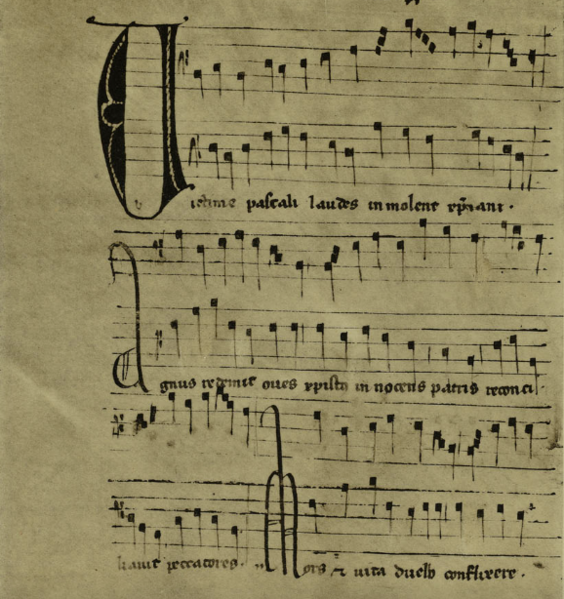 Uictime pascali laudes inmolent xp̃iani.
Agnus redemit oues xpistus innocens patris reconci
liauit peccatores. Mors ⁊ uita duello conflixere.